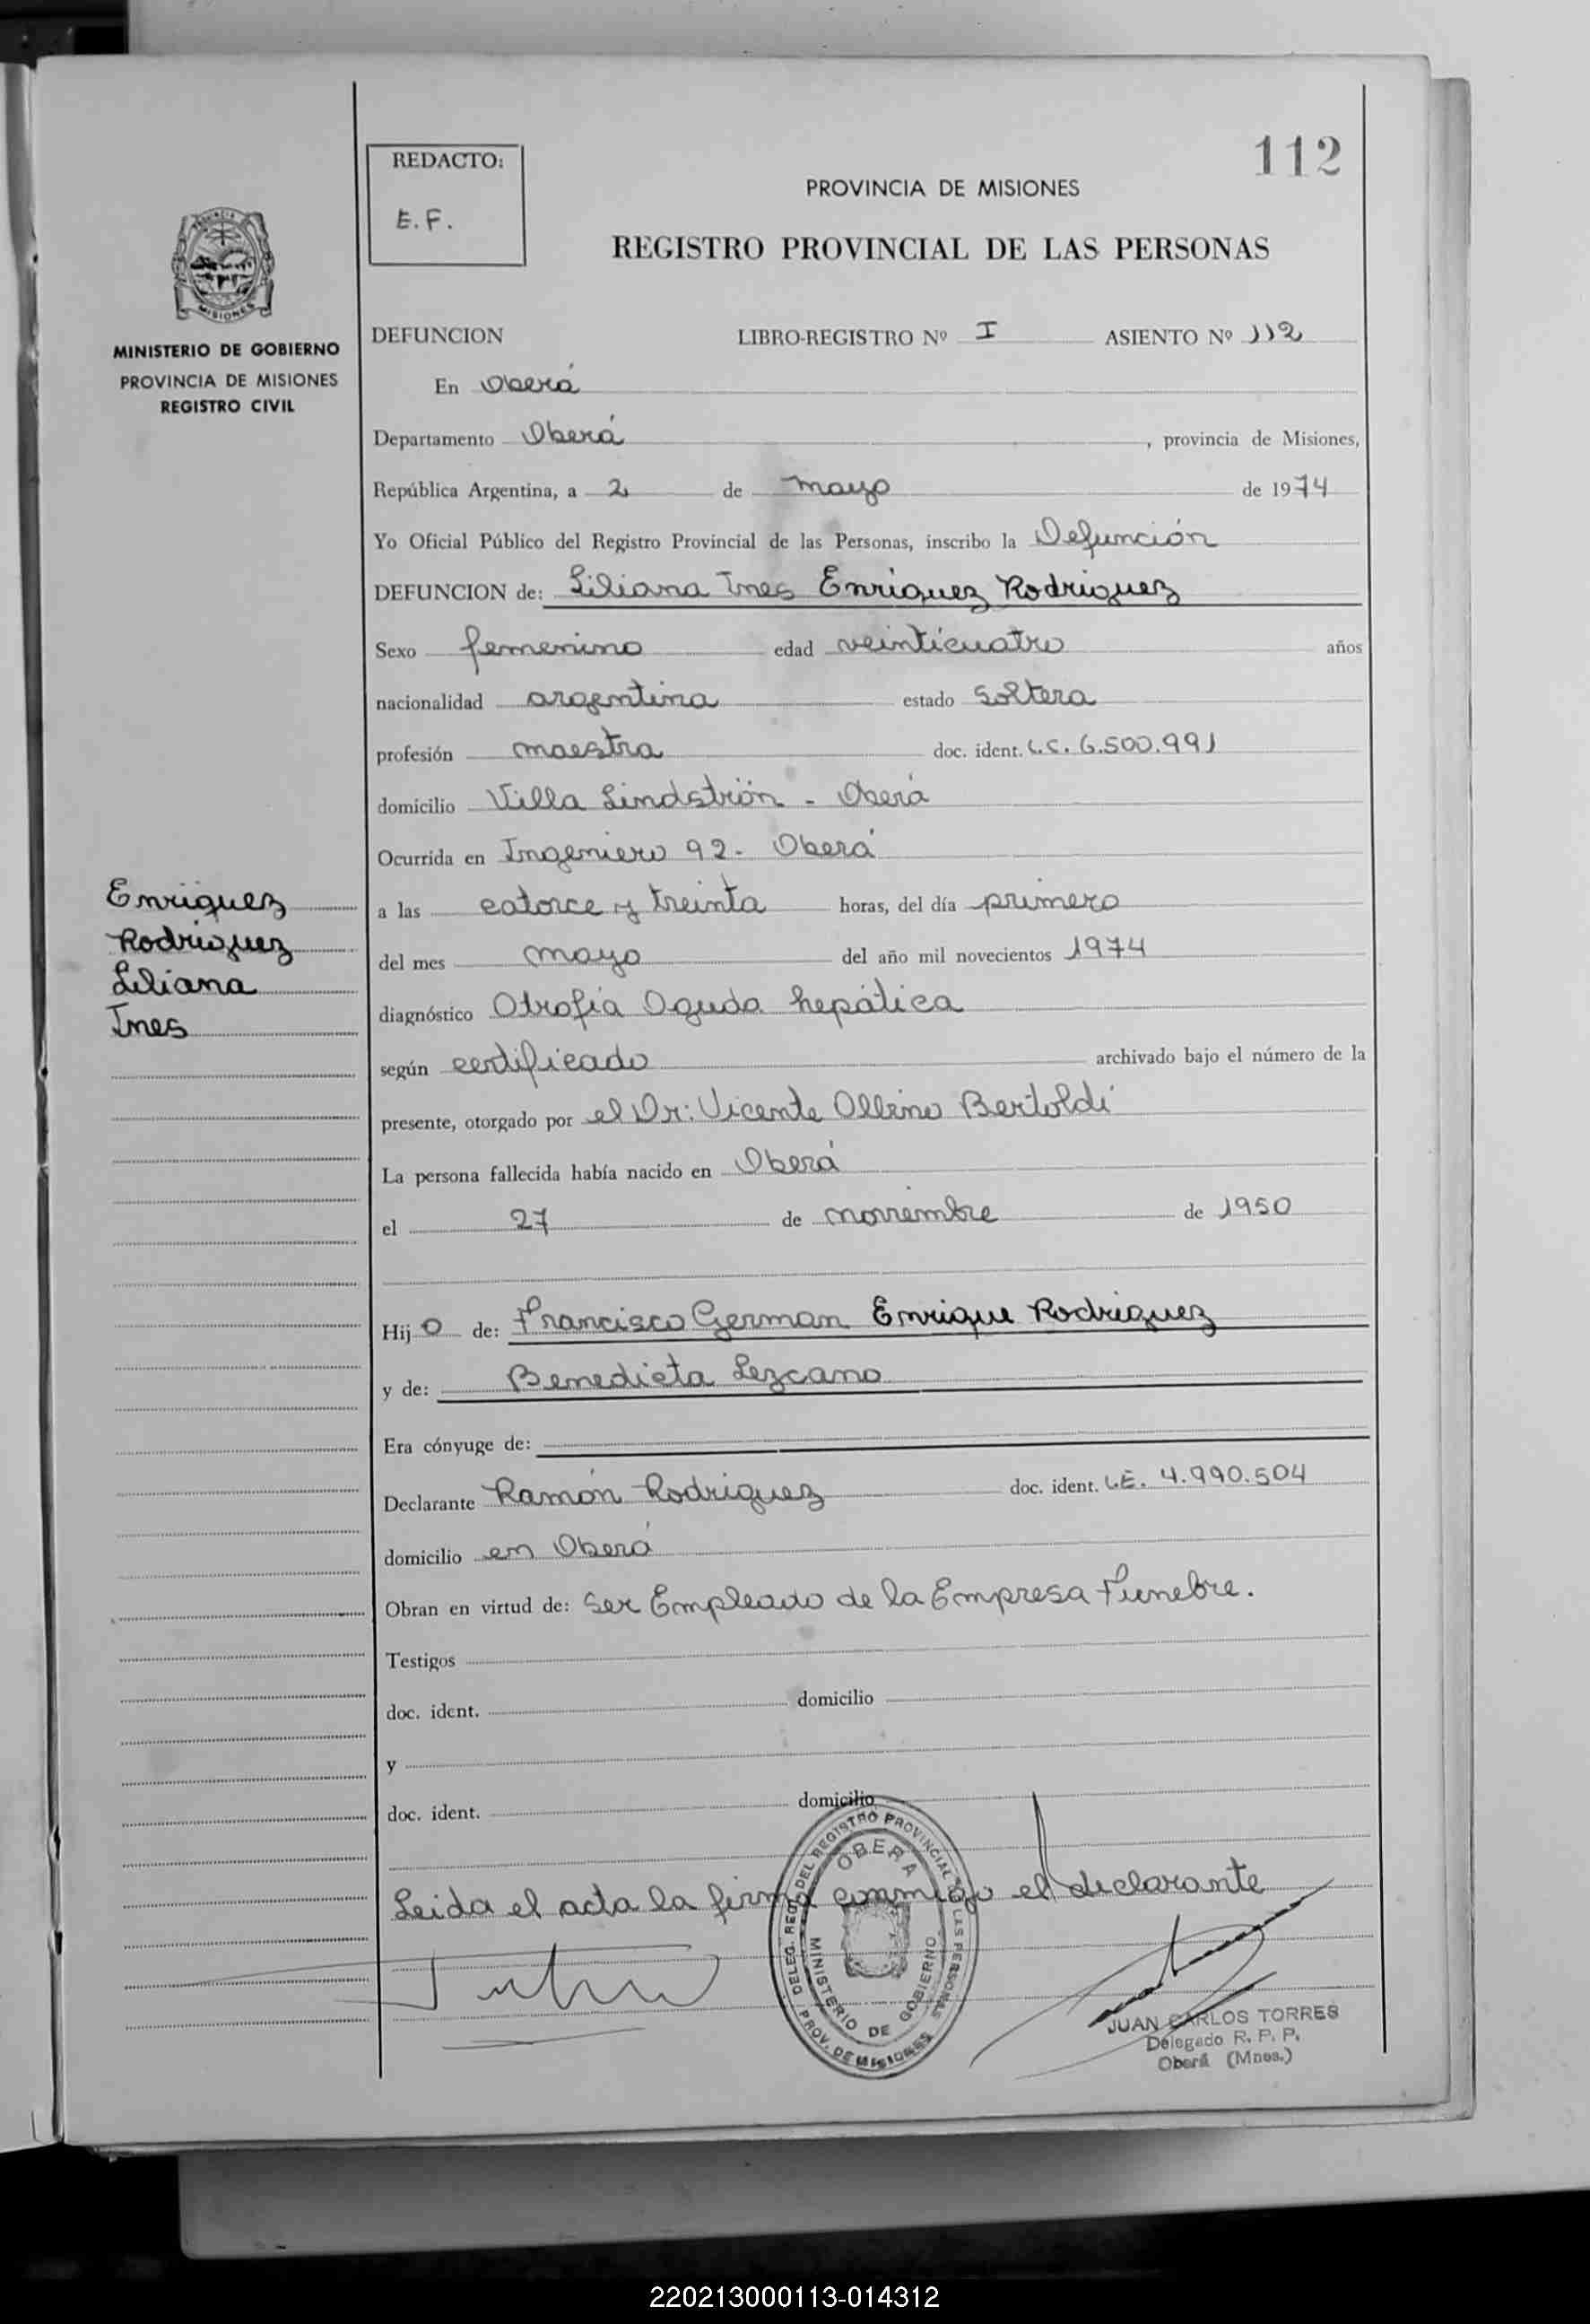 112
REDACTO:
E.F.
PROVINCIA DE MISIONES
REGISTRO PROVINCIAL DE LAS PERSONAS
MISIONES
MINISTERIO DE GOBIERNO
PROVINCIA DE MISIONES
REGISTRO CIVIL
DEFUNCION LIBRO-REGISTRO Nº I ASIENTO Nº 112
En Oberá
Departamento Oberá, provincia de Misiones,
República Argentina, a 2 de mayo de 1974
Yo Oficial Público del Registro Provincial de las Personas, inscribo la Defunción
DEFUNCION de: Liliana Ines Enriquez Rodriguez
Sexo femenino edad veinticuatro años
nacionalidad argentina estado Soltera
profesión maestra doc. ident. L.C. 6.500.991
domicilio Villa Lindström - Oberá
Ocurrida en Ingeniero 92 - Oberá
a las catorce y treinta horas, del día primero
del mes mayo del año mil novecientos 1974
diagnóstico Atrofia Aguda hepática
según certificado archivado bajo el número de la
presente, otorgado por el Dr: Vicente Bertoldi
La persona fallecida había nacido en Oberá
el 27 de noviembre de 1950
Enriquez
Rodriguez
Liliana
Ines
Hij o de: Francisco German Enrique Rodriguez
y de: Benedicta Lezcano
Era cónyuge de:
Declarante Ramón Rodriguez doc. ident. L.E. 4.990.504
domicilio en Oberá
Obran en virtud de: Ser Empleado de la Empresa Funebre.
Testigos
doc. ident. domicilio
y
doc. ident. domicilio
Leida el acta la firma conmigo el declarante
DELEG. REG. DEL REGISTRO PROVINCIAL DE LAS PERSONAS
OBERA
MINISTERIO DE GOBIERNO
PROV. DE MISIONES
JUAN CARLOS TORRES
Delegado R. P. P.
Oberá (Mnes.)
220213000113-014312